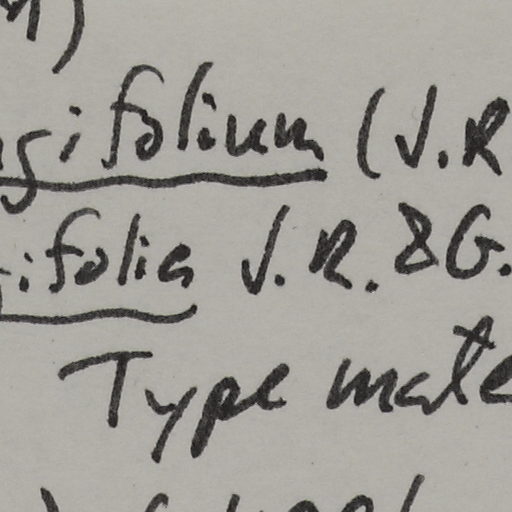 gifolium (J.R
ifolia J.R. & G.
Type mate